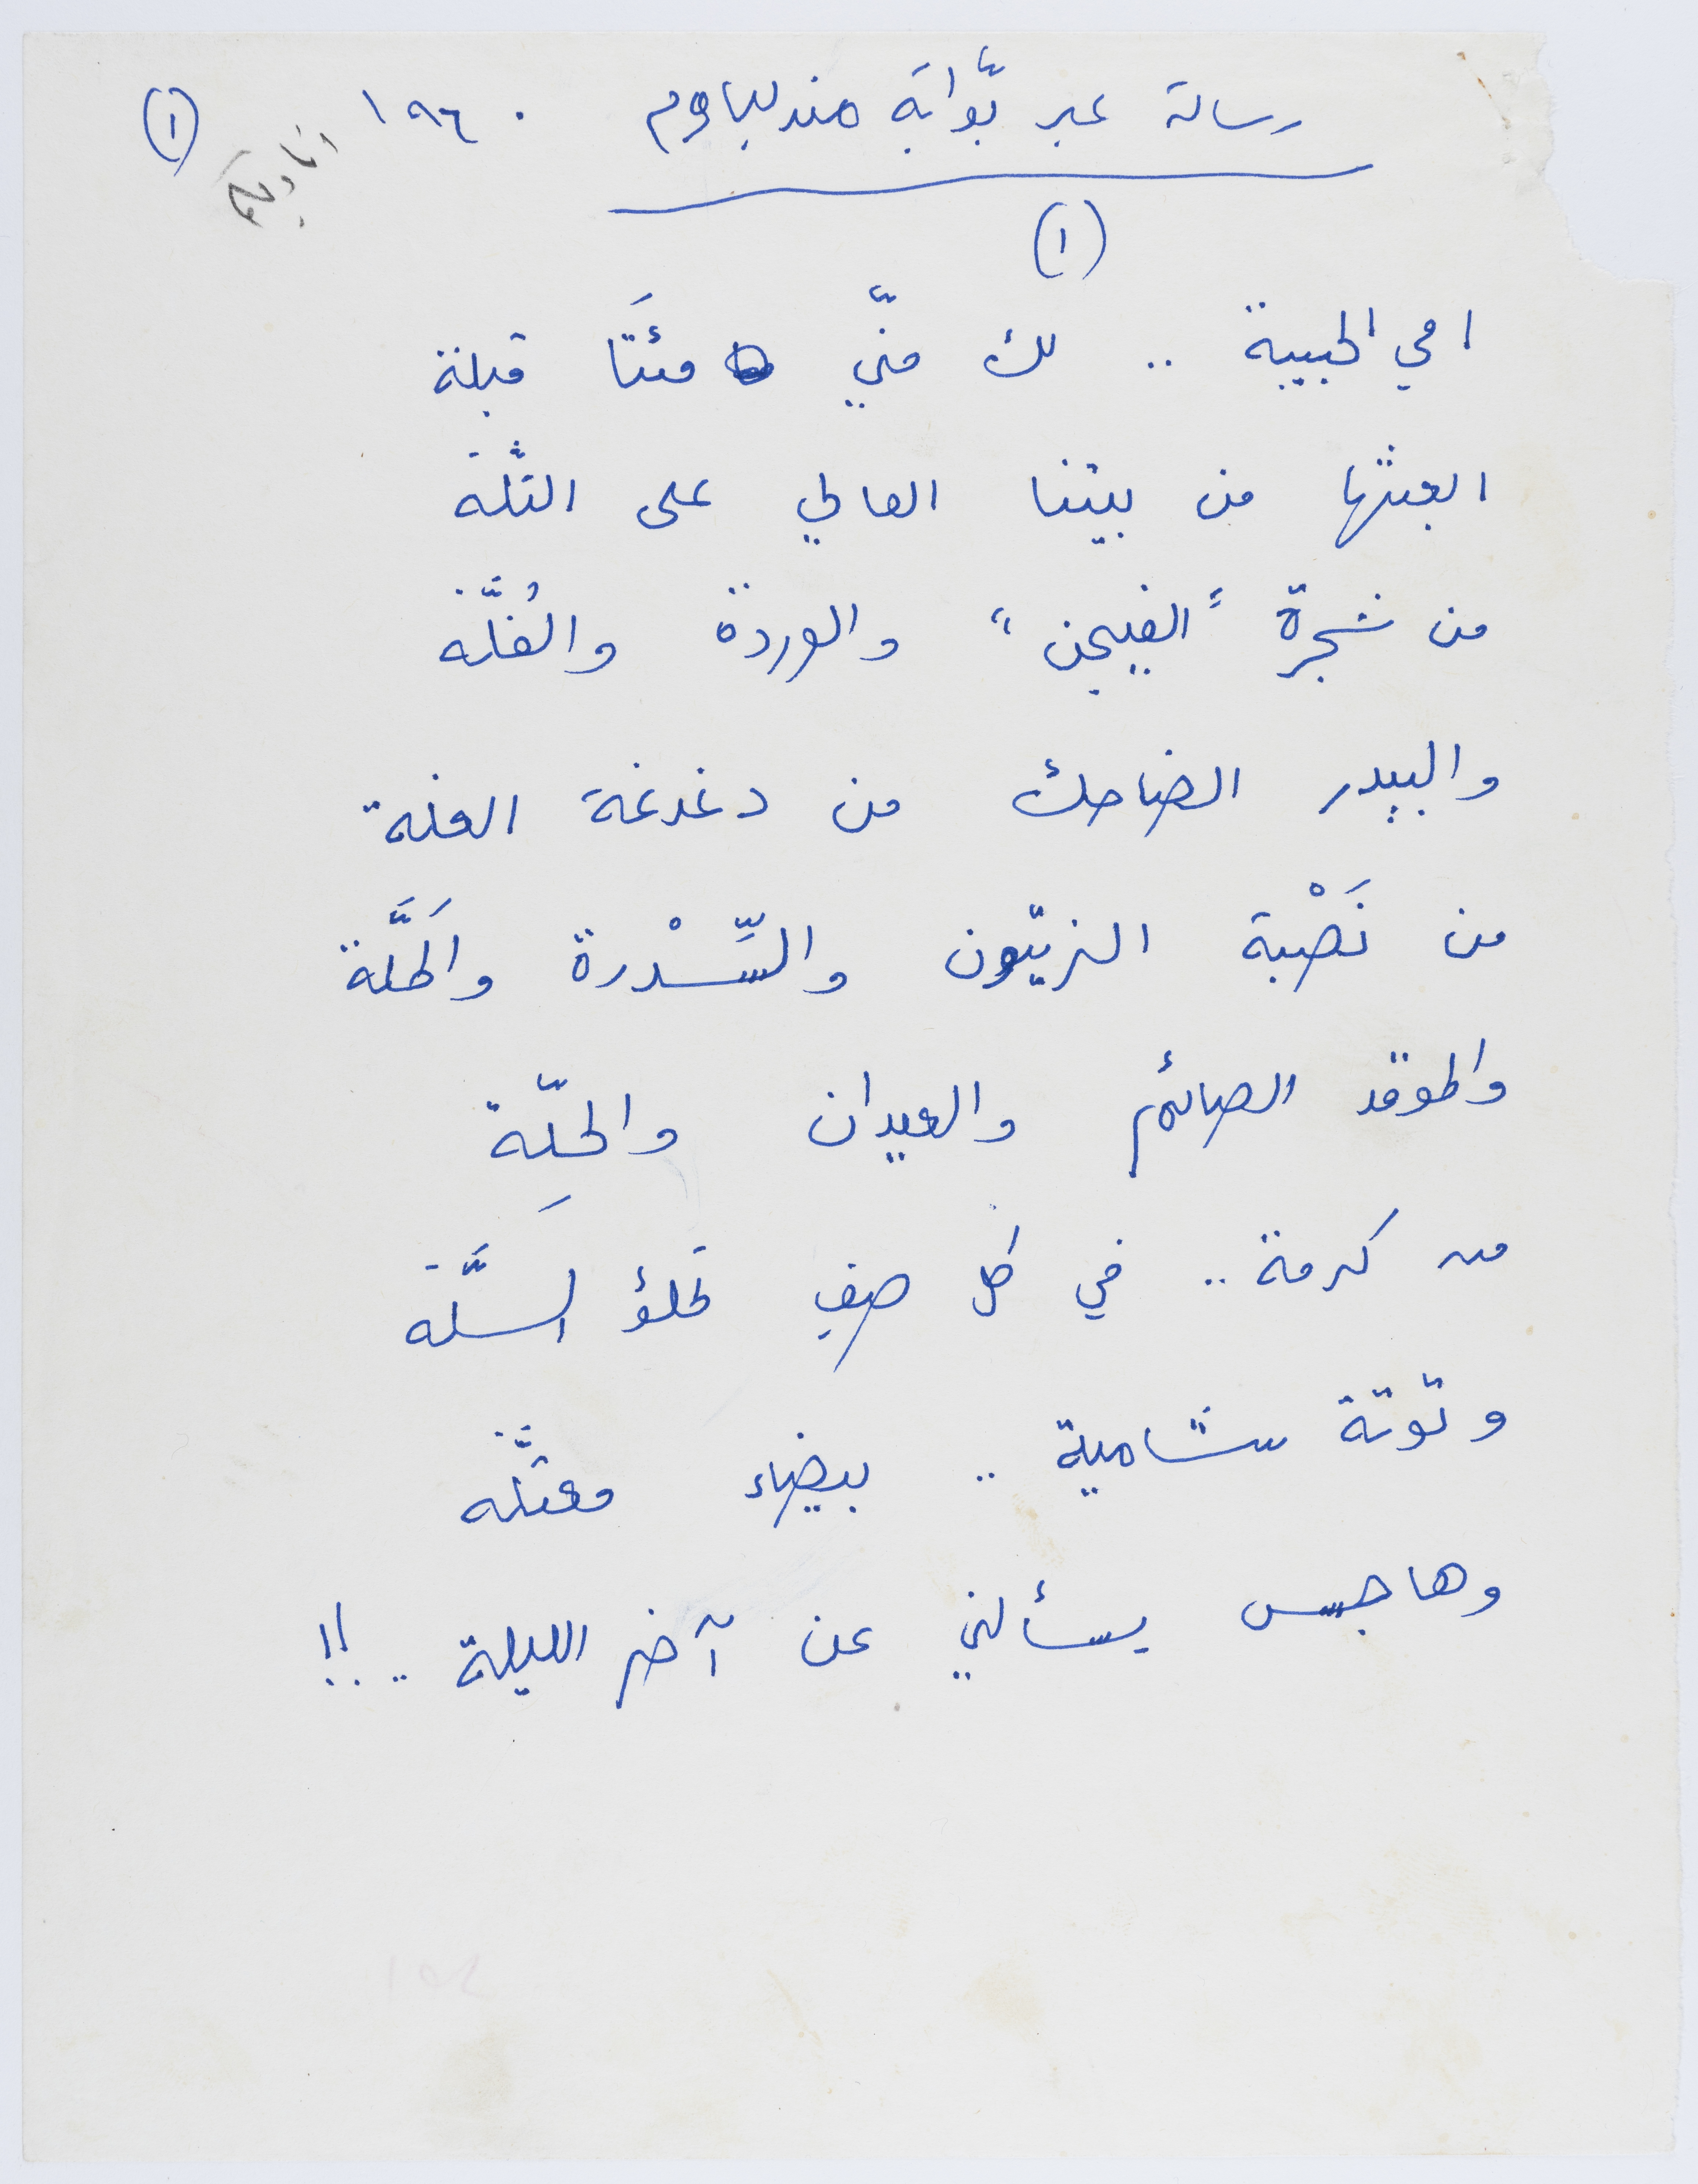 رسالة عبر بّوابة مندلباوم ١٩٦٠ (١)
اناديكم
(١)
امي الحبيبة .. لك منّي مئتَا قبلة
ابعثها من بيتنا العالي على التلّة
من شجرة "الفيجن" والوردة والفُلَّة
والبيدر الضاحك من دغدغة الغلة
من نَصْبة الزيتّون والسِّدْرة والخَلَّة
والموقد الصائم والعيدان والحَلّة
من كرمة .. في كل صيفٍ تملؤ السلَّة
وتوتة شامية .. بيضاء معتلَّة
وهاجس يسألني عن آخر الليلة ..!!